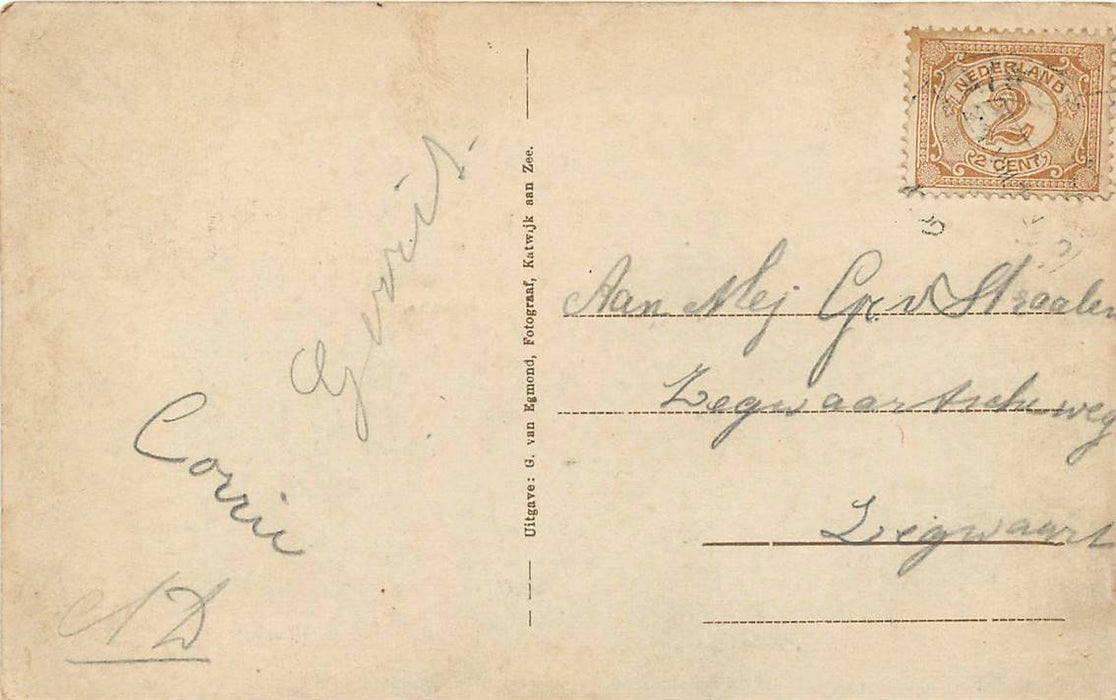 Gerrit.
Corrie
AD
Uitgave: G. van Egmond, Fotograaf, Katwijk aan Zee.
NEDERLAND
2
2 CENT
Aan Mej G. v Straalen
Zegwaartscheweg
Zegwaart